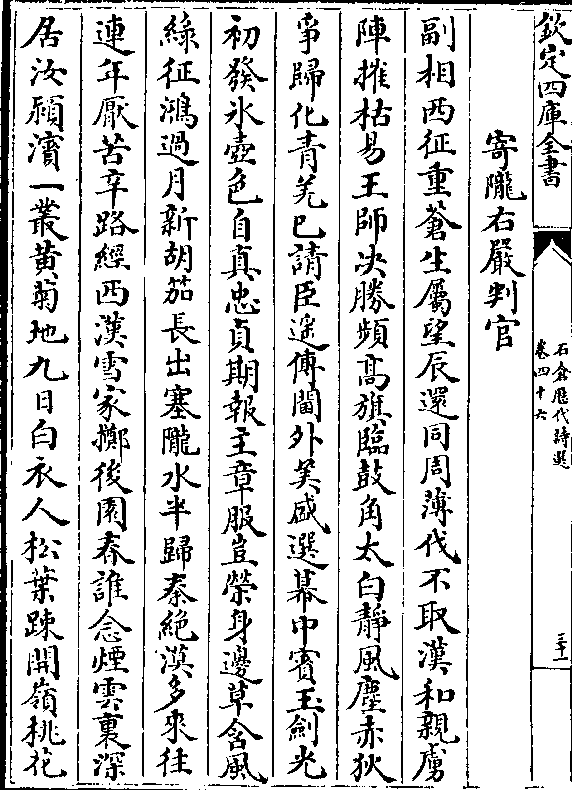 欽定四庫全書
石倉歷代詩選
卷四十六
三十一
寄隴右嚴判官
副相西征重蒼生屬望辰還同周薄伐不取漢和親虜
陣摧枯易王師决勝頻高旗臨鼓角太白静風塵赤狄
爭歸化青羌已請臣遥傳閫外美盛選幕中賓玉劍光
初發氷壺色自真忠貞期報主章服豈榮身邊草含風
綠征鴻過月新胡笳長出塞隴水半歸秦絶漠多來往
連年厭苦辛路經西漢雪家擲後園春誰念煙雲裏深
居汝潁濱一叢黄菊地九日白衣人松葉疎開嶺桃花